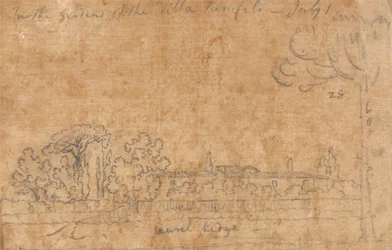 In the gardens of the Villa Pamfili - July 1
28
laurel hedge